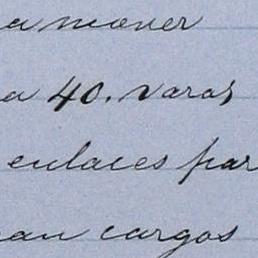 a mover
a 40. varas
enlaces par
an cargos